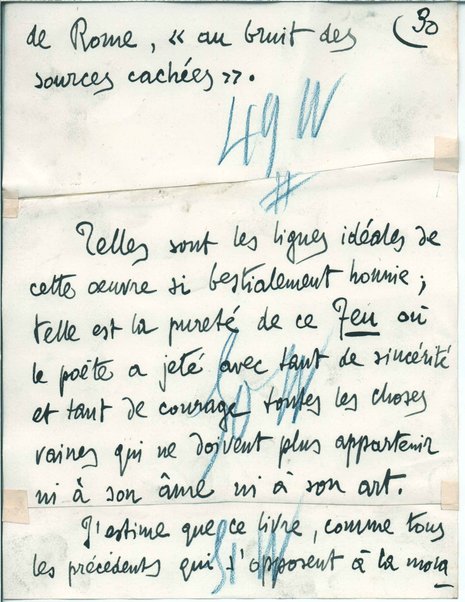 30
de Rome, « au bruit des
sources cachées ».
49 W
#
Telles sont les lignes idéales de
cette œuvre si bestialement honnie ;
telle est la pureté de ce Feu où
le poète a jeté avec tant de sincérité
et tant de courage toutes les choses
vaines qui ne doivent plus appartenir
ni à son âme ni à son art.
J'estime que ce livre, comme tous
les précédents qui s'opposent à la mora